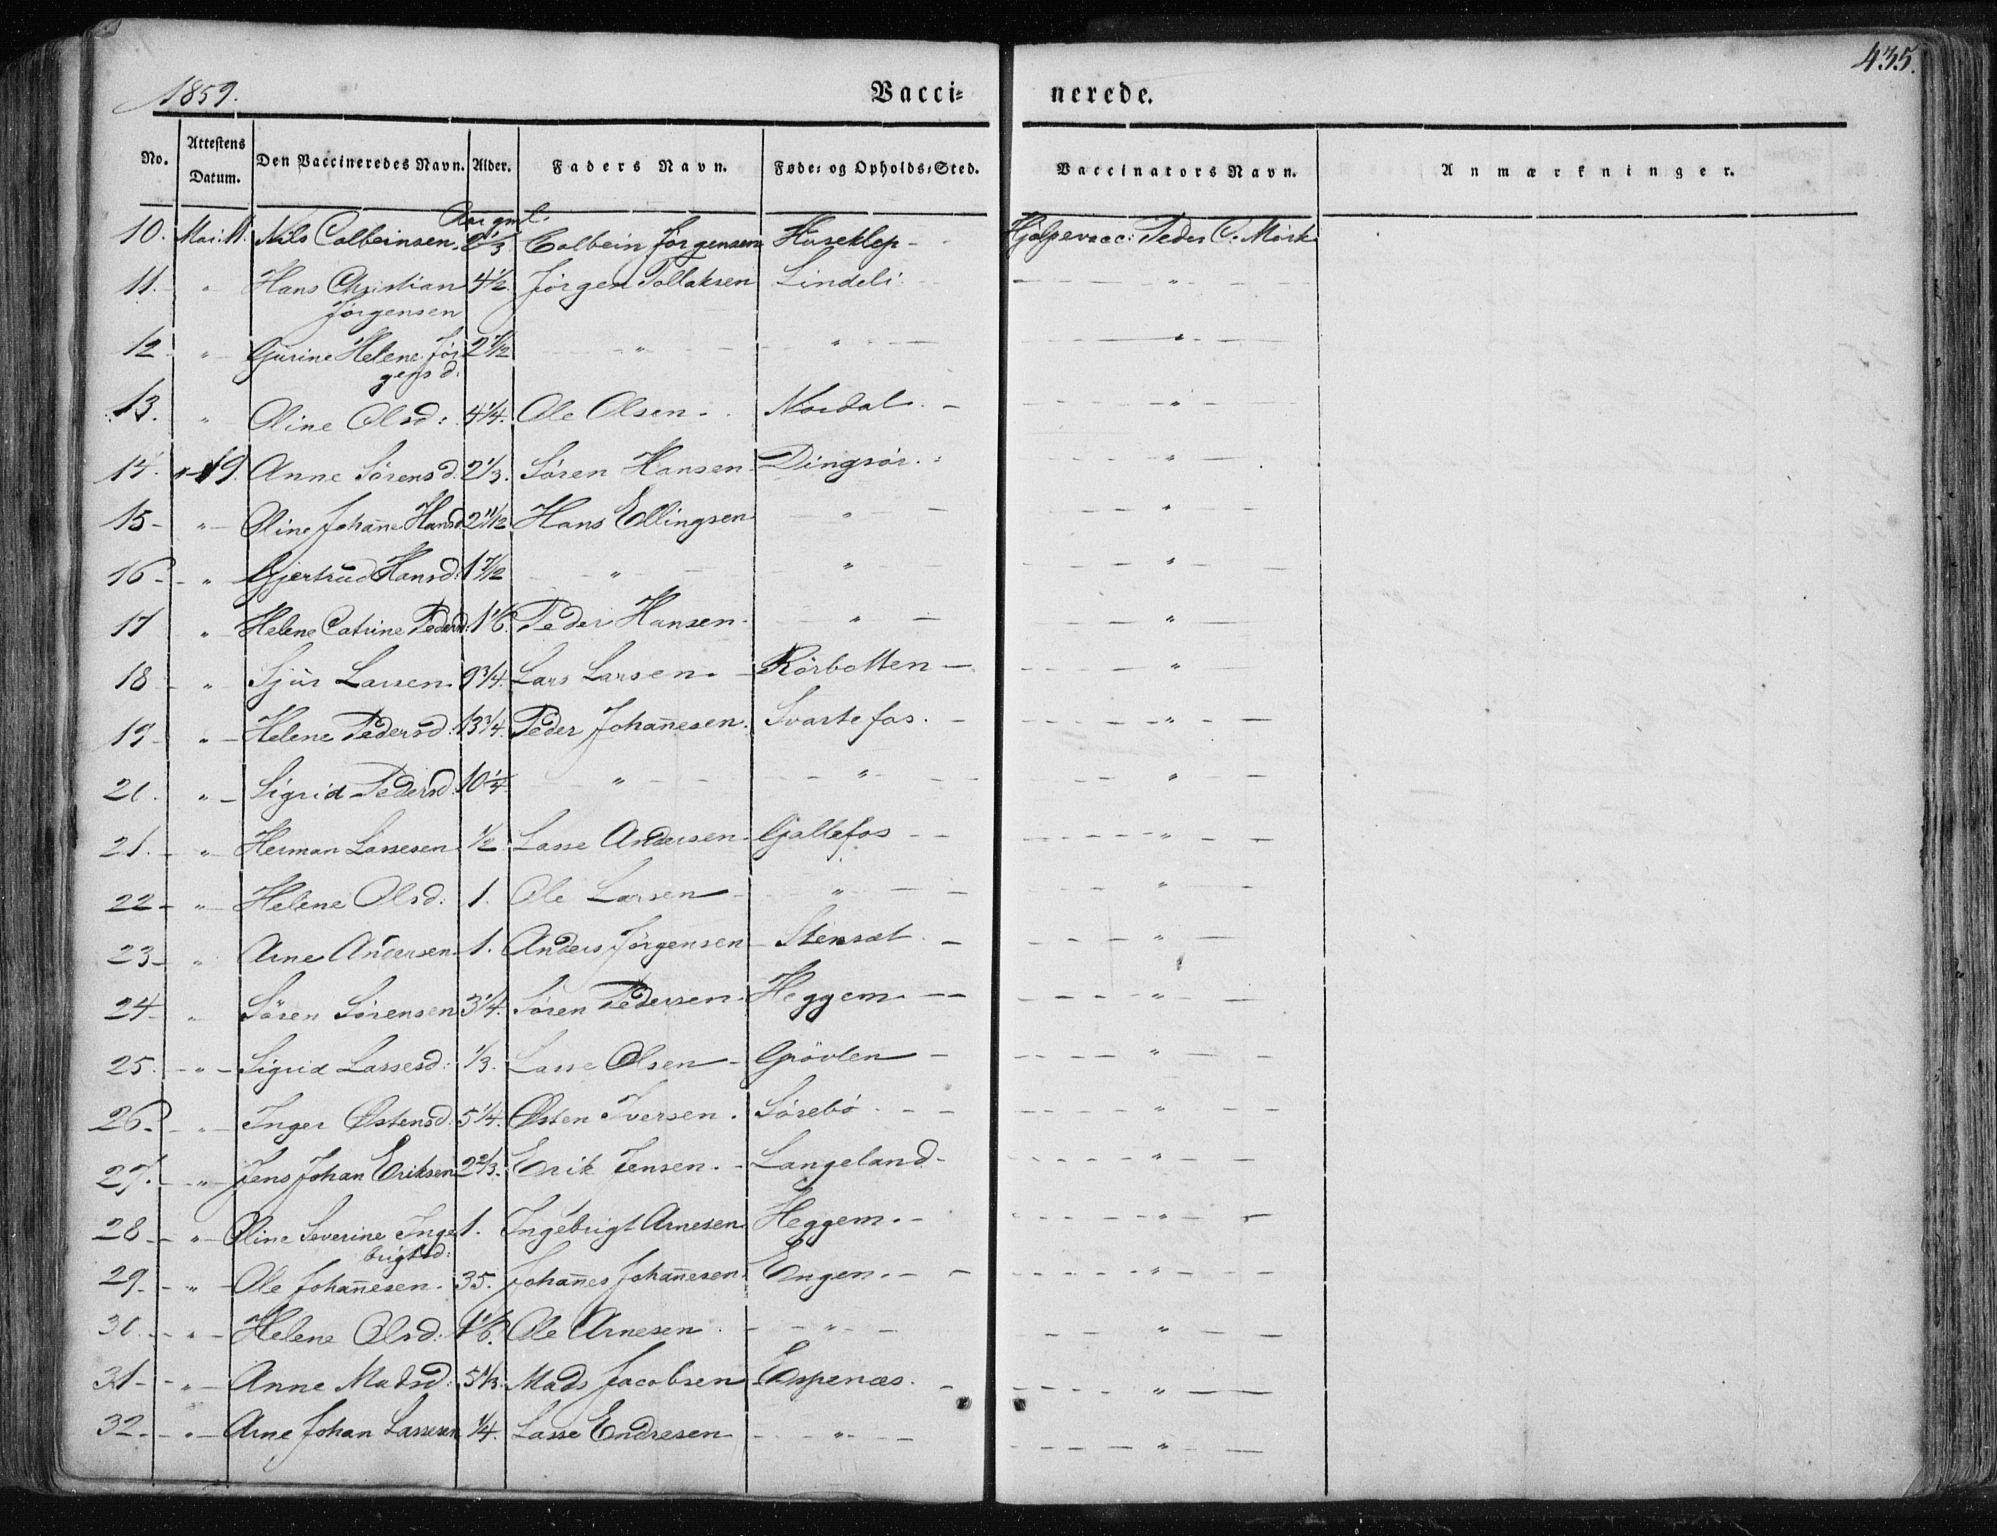 1859.
435.
Vacci= nerede.
No. Attestens Datum. Den Vaccineredes Navn. Alder. Faders Navn. Føde= og Opholds=Sted. Vaccinators Navn. Anmærkninger.
Aar gml.
10. Mai: 11. Nils Colbeinsen. Colbein Jørgensen Huseklep - Hjelpevacc: Peder C. Mørk
11. " Hans Christian 4 1/2. Jørgen Tollaksen Lindeli - "
Jørgensen
12 " Gurine Helene Jør 2 7/12 - " - - " - - " -
gensd.
13. " Oline Olsd: 4 1/4. Ole Olsen. Nordal. - "
14. " - 19. Anne Sørensd. 2 1/3. Søren Hansen Dingsør. "
15 - " - Oline Johañe Hansd 2 11/12 Hans Ellingsen - " - "
16 - " Gjertrud Hansd: 1 7/12 - " - - " - "
17 " - Helene Catrine Pedersd: 1 1/6. Peder Hansen. - " - "
18 - " Sjur Larsen. 9 3/4. Lars Larsen. - Rørbotten - "
19 - " - Helene Pedersd: 13 3/4. Peder Johañesen. Svartefos. - "
20. " - Sigrid Pedersd. 10 1/4. - " - - " - "
21. - " Herman Lassesen 1/2. Lasse Andersen. Gjeltefos - - "
22 - " - Helene Olsd: 1. Ole Larsen - - " - "
23 - " Arne Andersen - 1. Anders Jørgensen - Stensæt. - "
24 - " Søren Sørensen 3 1/4. Søren Pedersen. Heggem. - - "
25. - " - Sigrid Lassesd: 1/3. Lasse Olsen - Grøvlen - "
26. - " - Inger Østensd: 5 1/4. Østen Iversen. Sørebø. - - "
27. - " - Jens Johan Eriksen 2 2/3. Erik Jensen. - Langeland - "
28 - " - Oline Severine Inge 1. Ingebrigt Arnesen Heggem. - "
brigtsd:
29. - " - Ole Johañesen. 35. Johañes Johañesen. Engen. - - "
30. - " - Helene Olsd: 1 1/6. Ole Arnesen. - - " - "
31 - - " - Anne Madsd: 5 1/3. Mads Jacobsen Espenæs. - "
32. - " - Arne Johan Lassesen 1/4. Lasse Endresen - - " - "